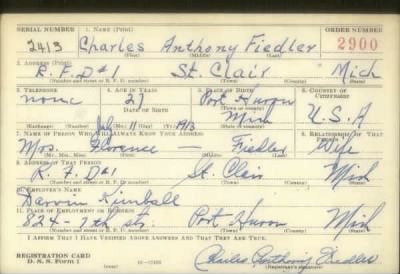 SERIAL NUMBER 1. NAME (Print) ORDER NUMBER
2413 Charles Anthony Fiedler 2900
(First) (Middle) (Last)
2. ADDRESS (Print)
R.F.D#1 St. Clair Mich
(Number and street or R. F. D. number) (Town) (County) (State)
3. TELEPHONE 4. AGE IN YEARS 5. PLACE OF BIRTH 6. COUNTRY OF CITIZENSHIP
none 27 Port Huron
DATE OF BIRTH Mich U.S.A
July 11 1913
(Exchange) (Number) (Mo.) (Day) (Yr.) (State or country)
7. NAME OF PERSON WHO WILL ALWAYS KNOW YOUR ADDRESS 8. RELATIONSHIP OF THAT PERSON
Mrs. Florence — Fiedler Wife
(Mr., Mrs., Miss) (First) (Middle) (Last)
9. ADDRESS OF THAT PERSON
R.F.D#1 St. Clair Mich
(Number and street or R. F. D. number) (Town) (County) (State)
10. EMPLOYER'S NAME
Darwin Kimball
11. PLACE OF EMPLOYMENT OR BUSINESS
824-7th str. Port Huron Mich
(Number and street or R. F. D. number) (Town) (County) (State)
I AFFIRM THAT I HAVE VERIFIED ABOVE ANSWERS AND THAT THEY ARE TRUE.
REGISTRATION CARD
D. S. S. FORM 1 (over) Charles Anthony Fiedler
(Registrant's signature)